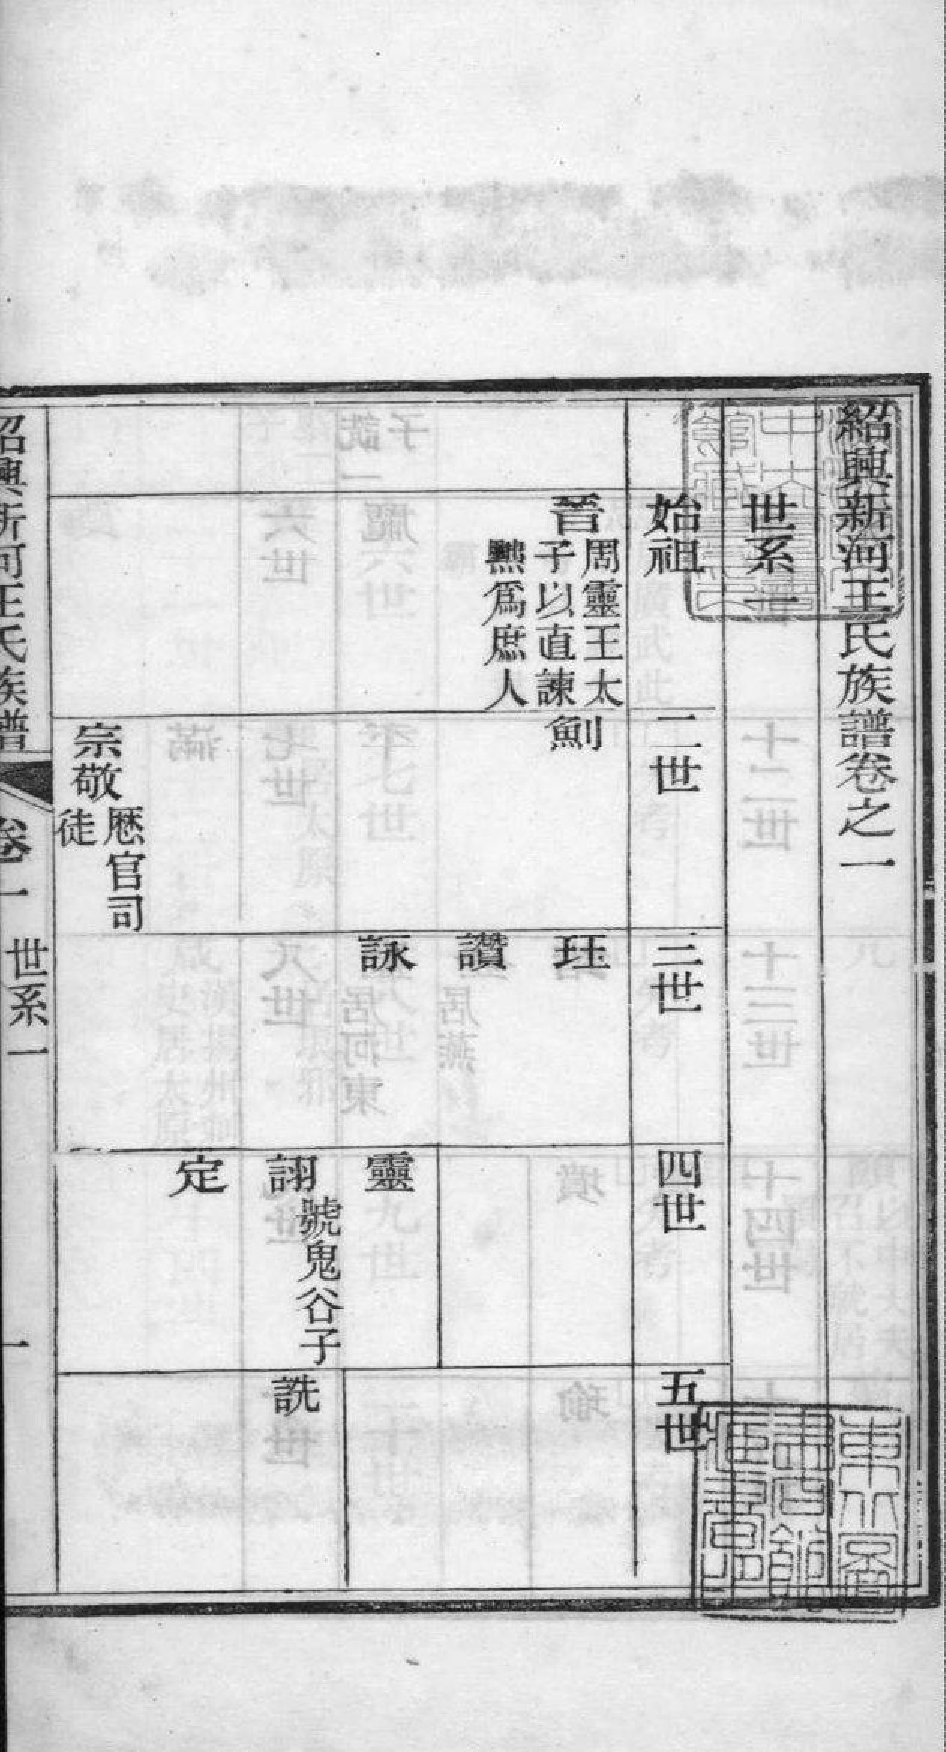 紹興新河王氏族譜卷之一
世系一
始祖
二世
三世
四世
五世
晉
周靈王太
子以直諫
黜爲庶人
劍
宗敬
歷官司
徒
珏
讚
詠
靈
詡
號鬼谷子
定
詵
紹興新河王氏族譜
卷一
世系一
一